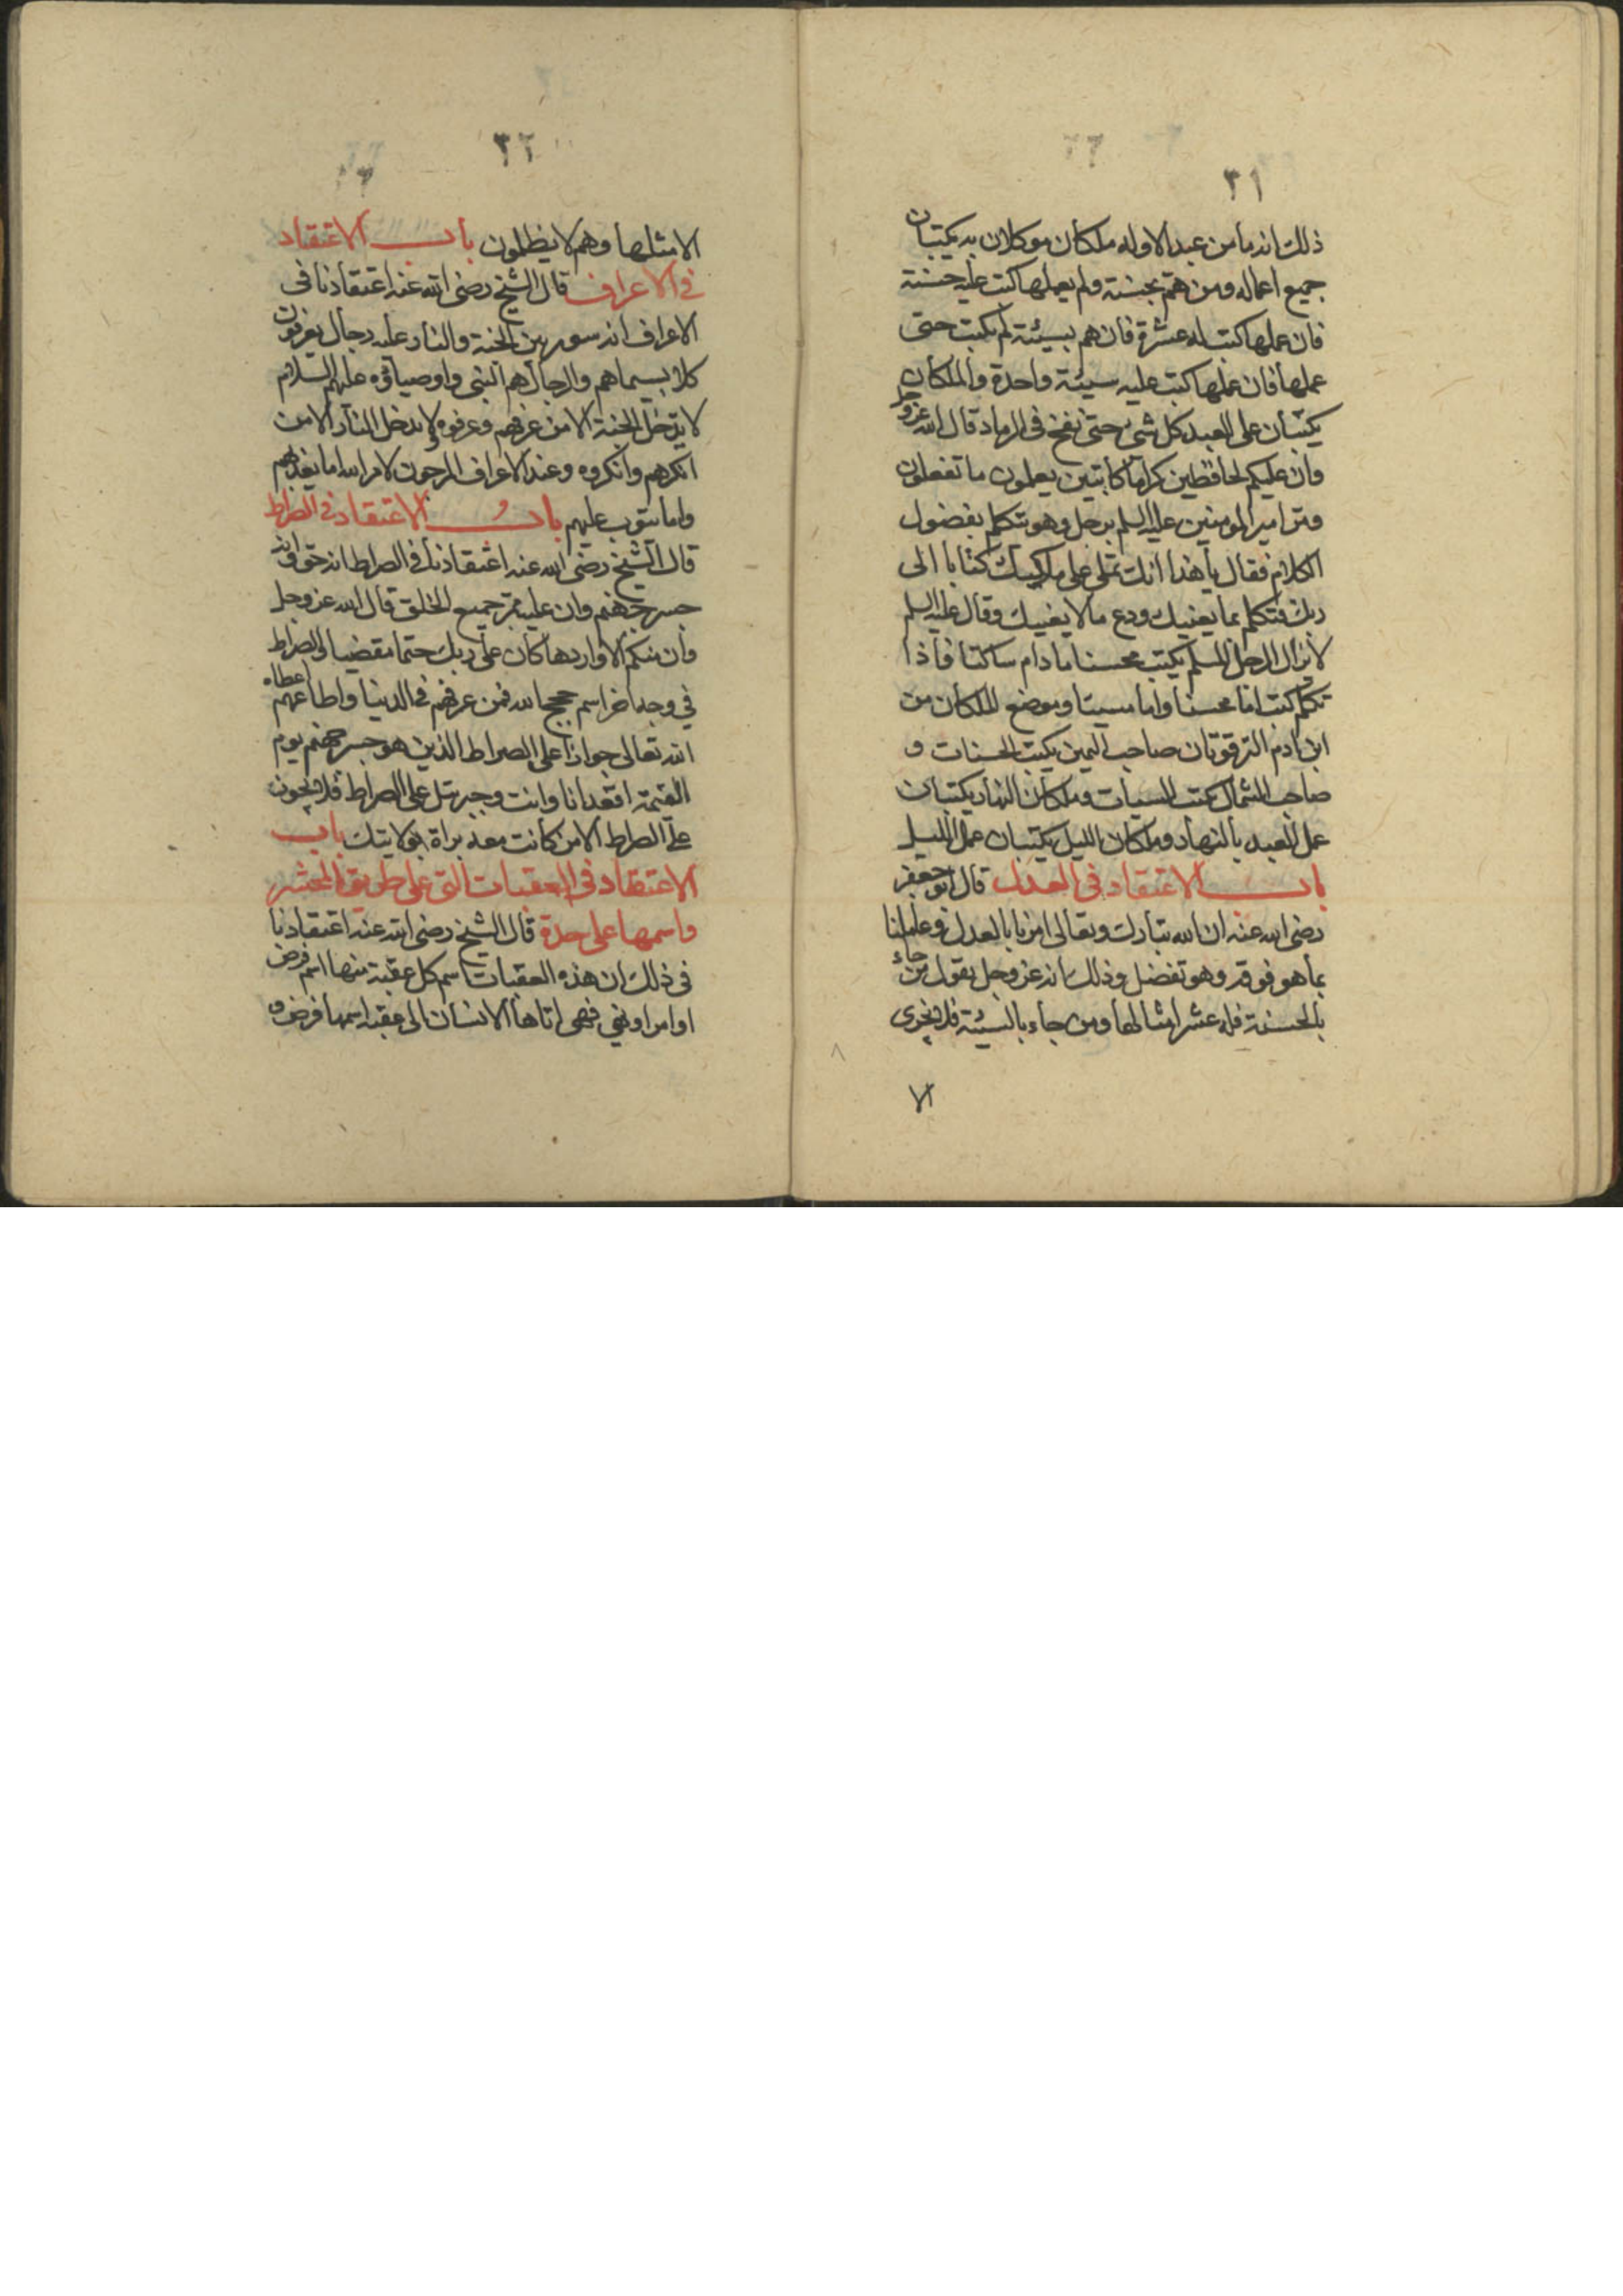 ٣١
ذلك انه ما من عبد الا وله ملكان موكلان به يكتبان
جميع اعماله ومن هم بحسنة ولم يعملها كتب عليه حسنة
فان عملها كتب له عشرة فان هم بسيئة لم يكتب حتى
عملها فان عملها كتب عليه سيئة واحدة والملكان
يكتبان على العبد كل شيء حتى نفخ فى الرماد قال الله عز وجل
وان عليكم لحافظين كراما كاتبين يعلمون ما تفعلون
ومر امير المومنين عليه السلم برجل وهو يتكلم بفضول
الكلام فقال يا هذا انك تملى على ملكيك كتابا الى
ربك فتكلم بما يعنيك ودع ما لا يعنيك وقال عليه السلم
لا يزال الرجل المسلم يكتب محسنا ما دام ساكتا فاذا
تكلم كتب اما محسنا واما مسيئا وموضع الملكان من
ابن ادم الترقوتان صاحب اليمين يكتب الحسنات و
صاحب الشمال يكتب السيأت وملكان النهار يكتبان
عمل العبد بالنهار وملكان الليل يكتبان عمل الليل
باب الاعتقاد فى العدل قال ابو جعفر
رضى الله عنه ان الله تبارك وتعالى امرنا بالعدل وعاملنا
بما هو فوقه وهو تفضل وذلك انه عز وجل يقول من جاء
بالحسنة فله عشر امثالها ومن جاء بالسيئة فلا يجزى
٣٢
الا مثلها وهم لا يظلمون باب الاعتقاد
فى الاعراف قال الشيخ رضى الله عنه اعتقادنا فى
الاعراف انه سور بين الجنة والنار عليه رجال يعرفون
كلا بسيماهم والرجال هم النبى واوصياؤه عليهم السلام
لا يدخل الجنة الا من عرفهم وعرفوه ولا يدخل النار الا من
انكرهم وانكروه وعند الاعراف المرجون لامر الله اما يعذبهم
واما يتوب عليهم باب الاعتقاد فى الصراط
قال الشيخ رضى الله عنه اعتقادنا فى الصراط انه حق وانه
جسر جهنم وان عليه ممر جميع الخلق قال الله عز وجل
وان منكم الا واردها كان على ربك حتما مقضيا والصراط
فى وجه اخر اسم حجج الله فمن عرفهم فى الدنيا واطاعهم اعطاه
الله تعالى جوازا على الصراط الذين هو جسر جهنم يوم
القيمة اقعد انا وانت وجبرئل على الصراط فلا يجون
على الصراط الا من كانت معه براة بولايتك باب
الاعتقاد فى العقبات التى على طريق المحشر
واسمها على حدة قال الشيخ رضى الله عنه اعتقادنا
فى ذلك ان هذه العقبات اسم كل عقبة منها اسم فرض
او امر او نهى فهى اتاها الانسان الى عقبه اسمها فرض و